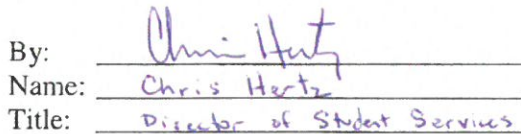 By: Chris Hertz
Name: Chris Hertz
Title: Director of Student Services